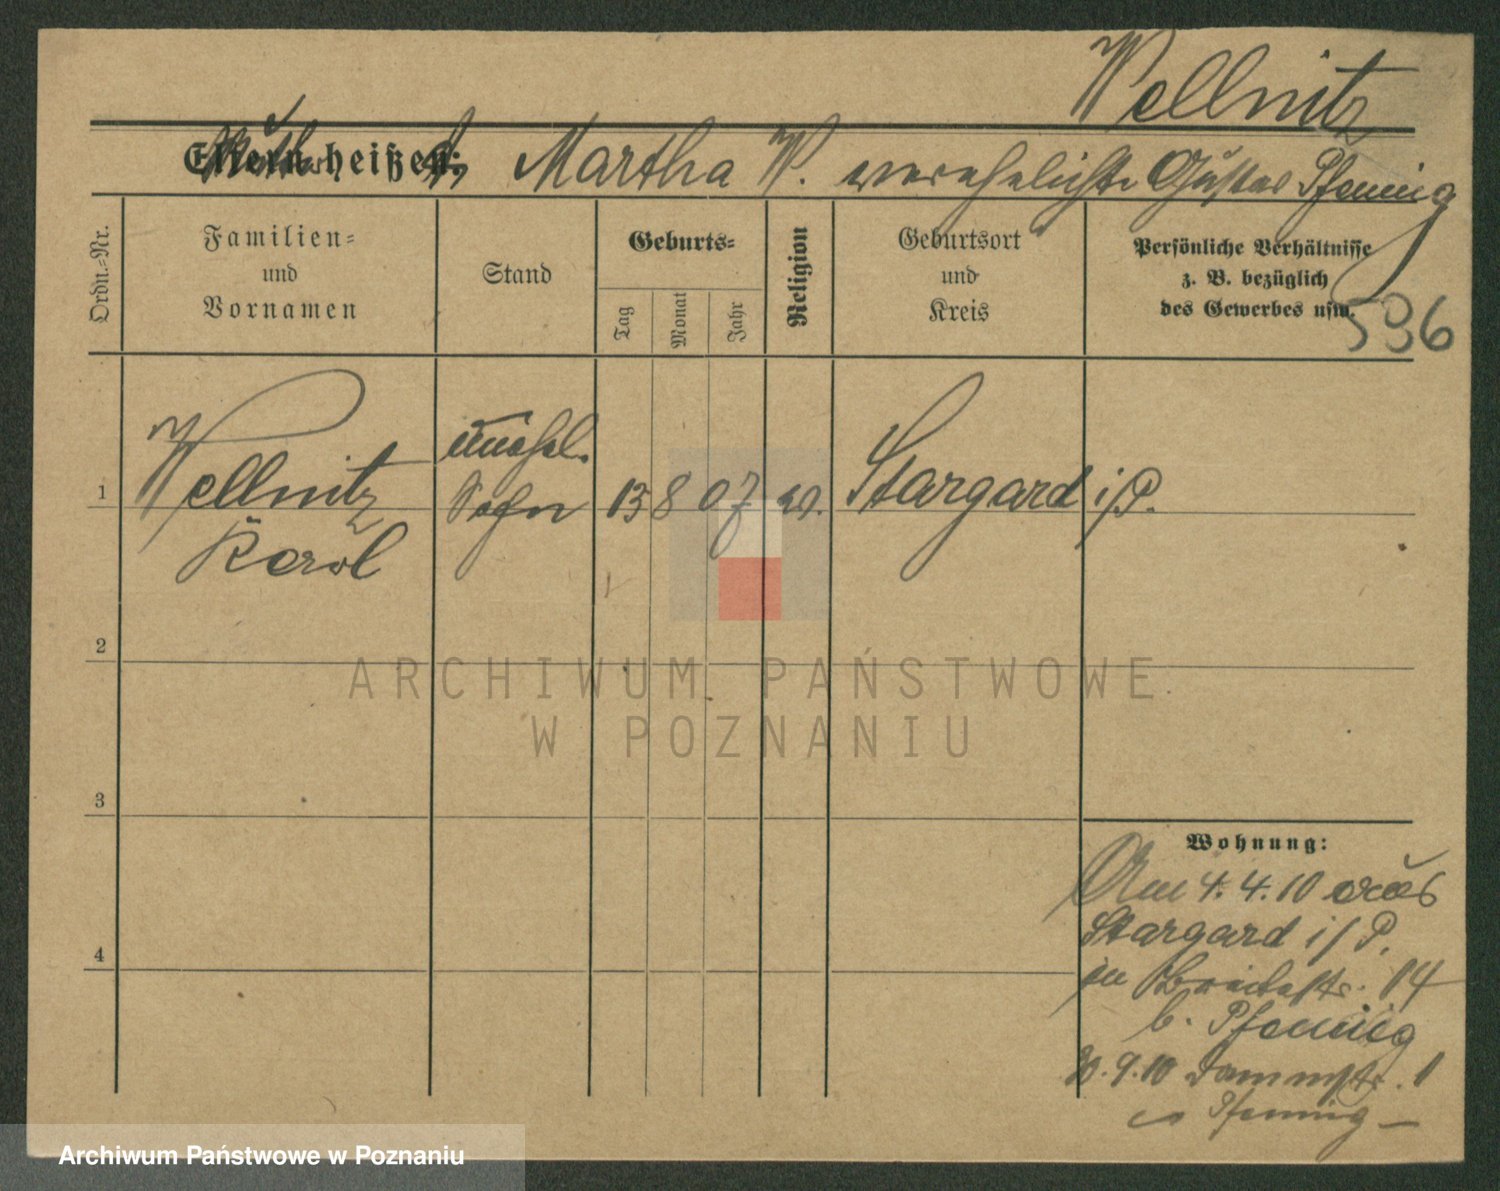 Wellnitz
Eltern heißen: Martha W. verehelichte Gustav Pfennig
Ordn.-Nr.
Familien=
und
Vornamen
Stand
Geburts=
Tag
Monat
Jahr
Religion
Geburtsort
und
Kreis
Persönliche Verhältnisse
z. B. bezüglich
des Gewerbes usw.
536
1
Wellnitz
Karl
unehel.
Sohn
13 8 07
ev.
Stargard i/P.
2
3
4
Wohnung:
Am 4. 4. 10 aus
Stargard i/P.
in Breitestr. 14
b. Pfennig
30. 9. 10 Dammstr. 1
Pfennig
ARCHIWUM PAŃSTWOWE
W POZNANIU
Archiwum Państwowe w Poznaniu